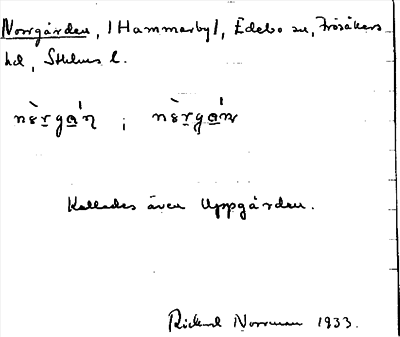 Norrgården, /Hammarby/, Edebo sn, Frösåkers
hd, Sthlms l.
nèrgán ; nèrgán
Kallades även Uppgården.
Rickard Norrman 1933.